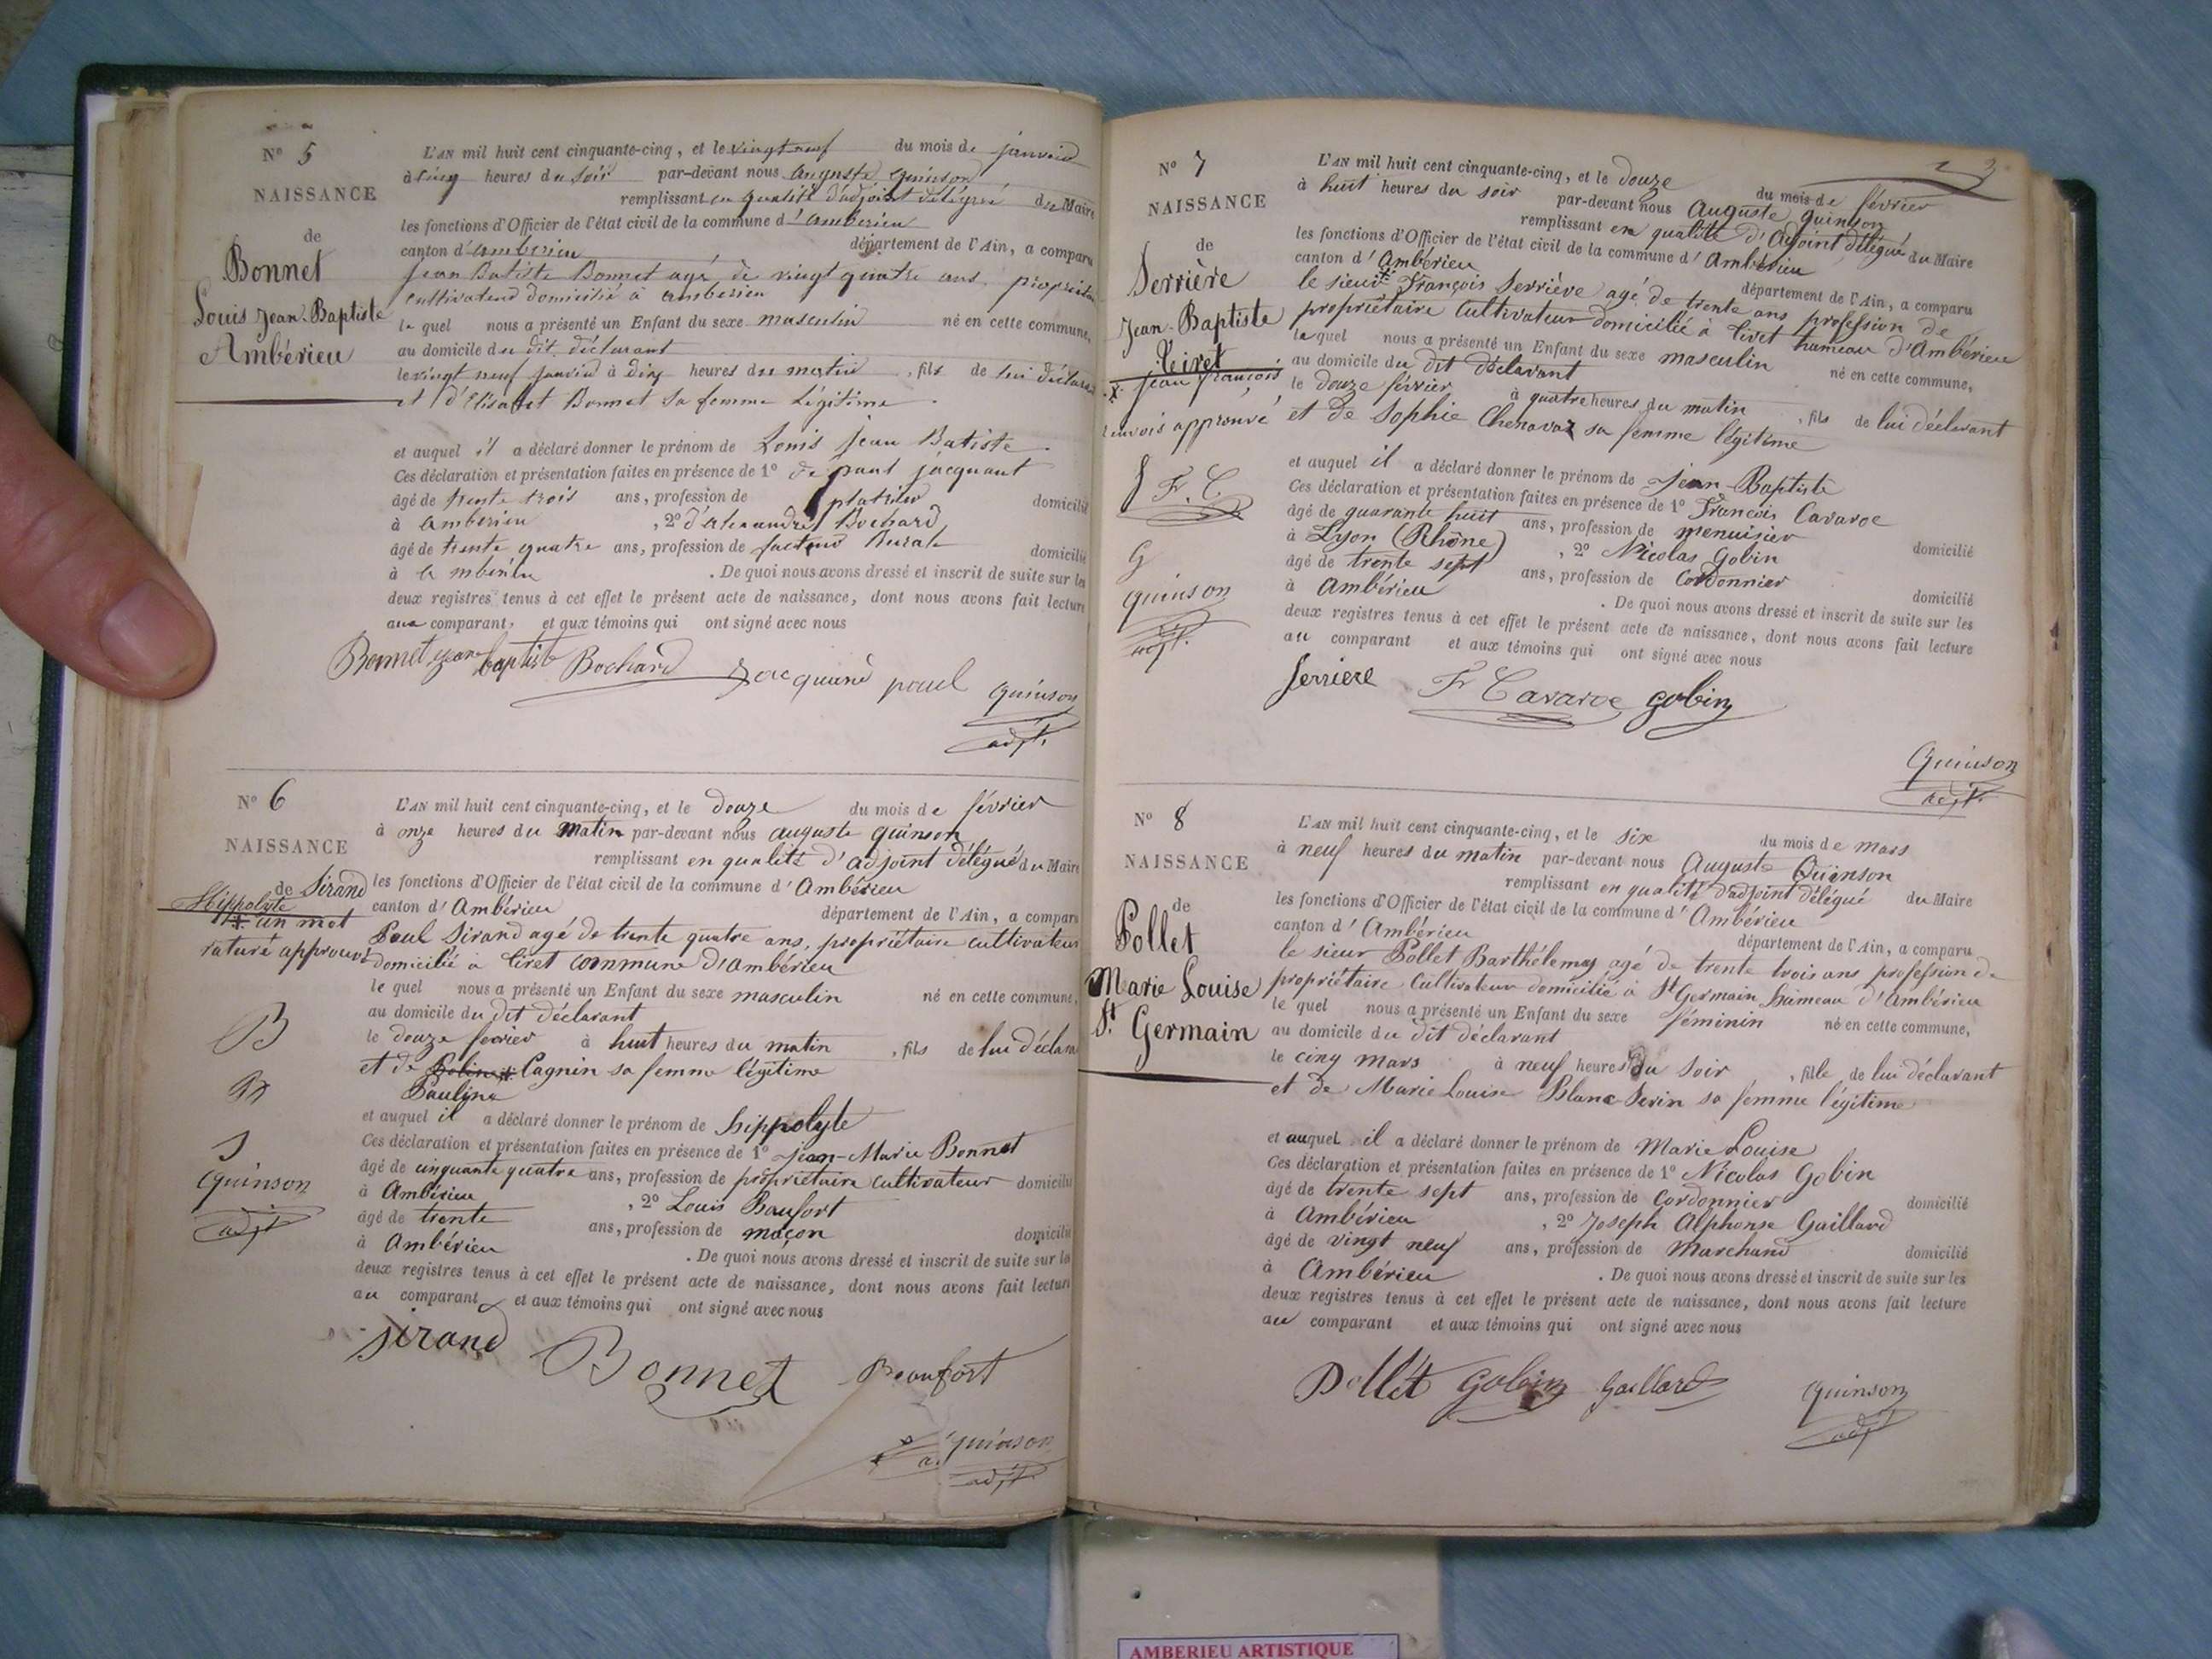 N° 5
NAISSANCE
de
Bonnet
Louis Jean-Baptiste
Ambérieu
L'AN mil huit cent cinquante-cinq, et le vingt neuf du mois de janvier
à cinq heures du soir par-devant nous auguste quinson
remplissant en qualité d'adjoint délégué du Maire
les fonctions d'Officier de l'état civil de la commune d'amberieu
canton d'amberieu département de l'Ain, a comparu
jean Batiste Bonnet agé de vingt quatre ans
cultivateur domicilié à amberieu
le quel nous a présenté un Enfant du sexe masculin né en cette commune,
au domicile du dit déclarant
le vingt neuf janvier à dix heures du matin, fils de lui
et d'Elisabet Bonnet sa femme Légitime
et auquel il a déclaré donner le prénom de Louis jean Batiste
Ces déclaration et présentation faites en présence de 1° de paul jacquant
âgé de trente trois ans, profession de platrier domicilié
à amberieu, 2° d'alexandre Bochard
âgé de trente quatre ans, profession de facteur Rural domicilié
à . De quoi nous avons dressé et inscrit de suite sur les
deux registres tenus à cet effet le présent acte de naissance, dont nous avons fait lecture
aux comparant, et aux témoins qui ont signé avec nous
Bonnet jean baptiste Bochard Jacquand paul quinson
adjt.
N° 6
NAISSANCE
de Sirand
Hippolyte
* un mot
raturé approuvé
B
B
S
Quinson
adjt
L'AN mil huit cent cinquante-cinq, et le douze du mois de février
à onze heures du matin par-devant nous auguste quinson
remplissant en qualité d'adjoint délégué du Maire
les fonctions d'Officier de l'état civil de la commune d'Ambérieu
canton d'Ambérieu département de l'Ain, a comparu
Paul Sirand agé de trente quatre ans, propriétaire cultivateur
domicilié à Tiret commune d'Ambérieu
le quel nous a présenté un Enfant du sexe masculin né en cette commune,
au domicile du dit déclarant
le douze fevrier à huit heures du matin, fils de lui
et de Poline * Cagnin sa femme légitime
Pauline
et auquel il a déclaré donner le prénom de hippolyte
Ces déclaration et présentation faites en présence de 1° Jean-Marie Bonnet
âgé de cinquante quatre ans, profession de propriétaire cultivateur domicilié
à Ambérieu, 2° Louis Baufort
âgé de trente ans, profession de maçon domicilié
à Ambérieu . De quoi nous avons dressé et inscrit de suite sur les
deux registres tenus à cet effet le présent acte de naissance, dont nous avons fait lecture
au comparant et aux témoins qui ont signé avec nous
sirand Bonnet Beaufort
quinson
adjt
N° 7
NAISSANCE
de
Serrière
Jean-Baptiste
Tiret
x jean françois
renvois approuvé
S F. C.
G
quinson
adjt.
3
L'AN mil huit cent cinquante-cinq, et le douze du mois de février
à huit heures du soir par-devant nous Auguste quinson
remplissant en qualité d'Adjoint délégué du Maire
les fonctions d'Officier de l'état civil de la commune d'Ambérieu
canton d'Ambérieu département de l'Ain, a comparu
le sieur François Serrière agé de trente ans profession de
propriétaire Cultivateur domicilié à Tiret hameau d'Ambérieu
le quel nous a présenté un Enfant du sexe masculin né en cette commune,
au domicile du dit déclarant
le douze février à quatre heures du matin, fils de lui déclarant
et de Sophie Chenavaz sa femme légitime
et auquel il a déclaré donner le prénom de Jean-Baptiste
Ces déclaration et présentation faites en présence de 1° François Cavaroc
âgé de quarante huit ans, profession de menuisier domicilié
à Lyon (Rhône), 2° Nicolas Gobin
âgé de trente sept ans, profession de Cordonnier domicilié
à Ambérieu . De quoi nous avons dressé et inscrit de suite sur les
deux registres tenus à cet effet le présent acte de naissance, dont nous avons fait lecture
au comparant et aux témoins qui ont signé avec nous
Serriere Fr Cavaroc gobin
Quinson
adjt.
N° 8
NAISSANCE
de
Pollet
Marie Louise
St Germain
L'AN mil huit cent cinquante-cinq, et le six du mois de mars
à neuf heures du matin par-devant nous Auguste Quinson
remplissant en qualité d'adjoint délégué du Maire
les fonctions d'Officier de l'état civil de la commune d'Ambérieu
canton d'Ambérieu département de l'Ain, a comparu
le sieur Pollet Barthélemy agé de trente trois ans profession de
propriétaire Cultivateur domicilié à St Germain hameau d'Ambérieu
le quel nous a présenté un Enfant du sexe féminin né en cette commune,
au domicile du dit déclarant
le cinq mars à neuf heures du soir, fille de lui déclarant
et de Marie Louise Blanc-Serin sa femme légitime
et auquel il a déclaré donner le prénom de Marie Louise
Ces déclaration et présentation faites en présence de 1° Nicolas Gobin
âgé de trente sept ans, profession de Cordonnier domicilié
à Ambérieu, 2° Joseph Alphonse Gaillard
âgé de vingt neuf ans, profession de Marchand domicilié
à Ambérieu . De quoi nous avons dressé et inscrit de suite sur les
deux registres tenus à cet effet le présent acte de naissance, dont nous avons fait lecture
au comparant et aux témoins qui ont signé avec nous
Pollet Gobin Gaillard Quinson
adjt
AMBERIEU ARTISTIQUE